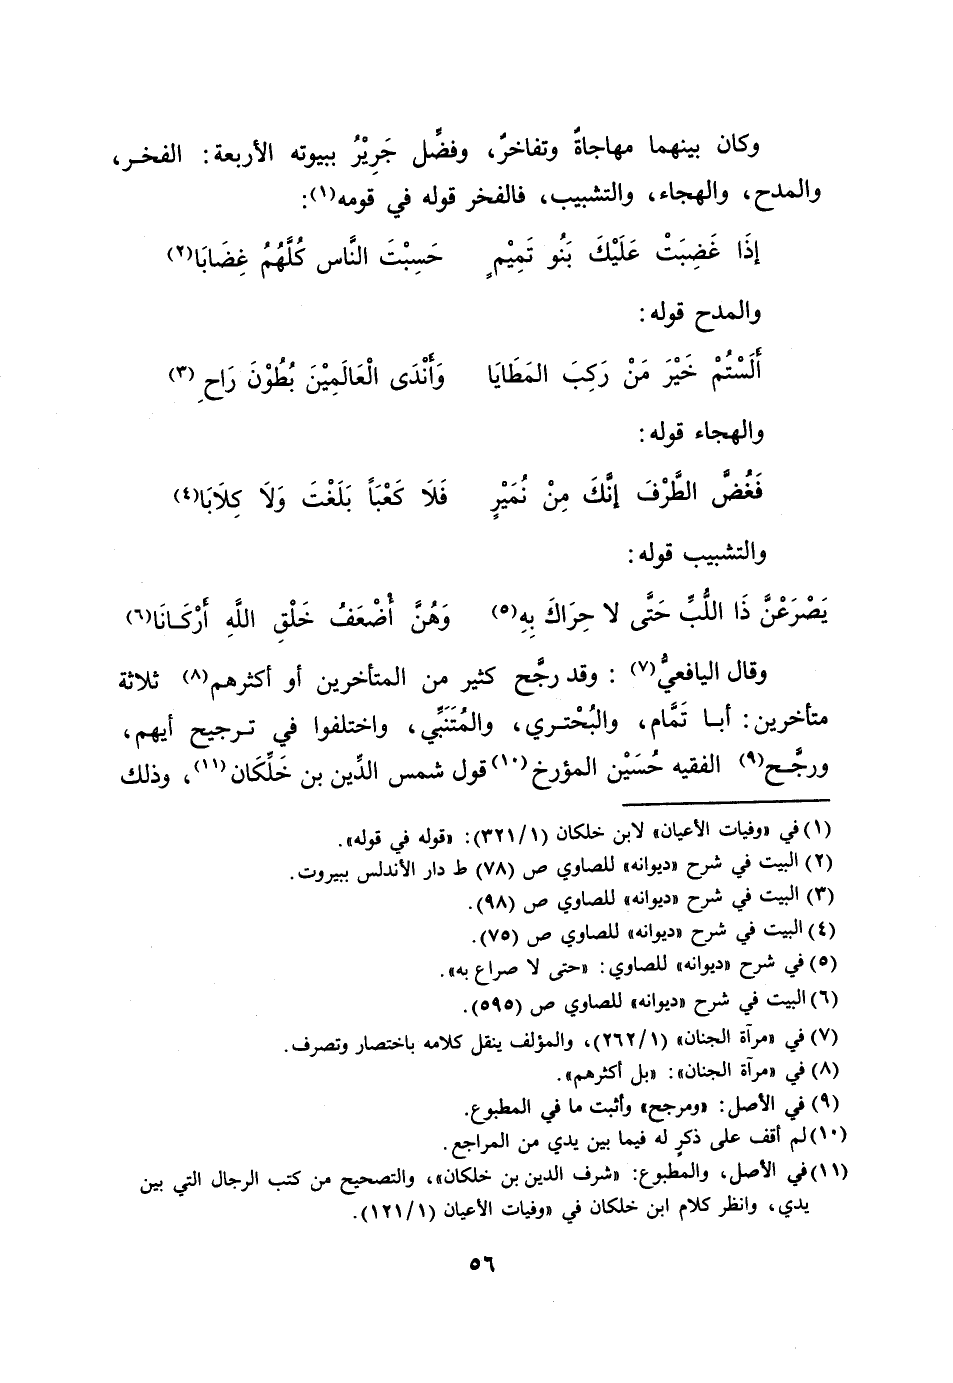 وكان بينهما مهاجاةٌ وتفاخرٌ، وفضَّل جَرِيْرُ ببيوته الأربعة: الفخـر،
والمدح، والهجاء، والتشبيب، فالفخر قوله في قومه(١):
إذَا غَضِبَتْ عَلَيْكَ بَنُو تَمِيْمٍ حَسِبْتَ النَّاس كُلَّهُمُ غِضَابَا(٢)
والمدح قوله:
أَلَسْتُمْ خَيْرَ مَنْ رَكِبَ المَطَايَا وَأَنْدَى الْعَالَمِيْنَ بُطُوْنَ رَاحِ (٣)
والهجاء قوله:
فَغُضَّ الطَّرْفَ إِنَّكَ مِنْ نُمَيْرٍ فَلَا كَعْبَاً بَلَغْتَ وَلَا كِلَابَا(٤)
والتشبيب قوله:
يَصْرَعْنَّ ذَا اللُّبِّ حَتَّى لا حِرَاكَ بِهِ(٥) وَهُنَّ أَضْعَفُ خَلْقِ اللَّهِ أَرْكَـانَا(٦)
وقال اليافعيُّ(٧) : وقد رجَّح كثير من المتأخرين أو أكثرهم(٨) ثلاثة
متأخرين: أبـا تَمَّام، والبُحْتري، والمُتَنَبِّي، واختلفوا في تـرجيح أيهم،
ورجَّـح(٩) الفقيه حُسَيْن المؤرخ(١٠) قول شمس الدِّين بن خَلِّكَان(١١)، وذلك
(١) في «وفيات الأعيان» لابن خلكان (٣٢١/١): «قوله في قوله».
(٢) البيت في شرح «ديوانه» للصاوي ص (٧٨) ط دار الأندلس ببيروت.
(٣) البيت في شرح «ديوانه» للصاوي ص (٩٨).
(٤) البيت في شرح «ديوانه» للصاوي ص (٧٥).
(٥) في شرح «ديوانه» للصاوي: «حتى لا صراع به».
(٦) البيت في شرح «ديوانه» للصاوي ص (٥٩٥).
(٧) في «مرآة الجنان» (٢٦٢/١)، والمؤلف ينقل كلامه باختصار وتصرف.
(٨) في «مرآة الجنان»: «بل أكثرهم».
(٩) في الأصل: «ومرجح» وأثبت ما في المطبوع.
(١٠) لم أقف على ذكرٍ له فيما بين يدي من المراجع.
(١١) في الأصل، والمطبوع: «شرف الدين بن خلكان»، والتصحيح من كتب الرجال التي بين
يدي، وانظر كلام ابن خلكان في «وفيات الأعيان (١٢١/١).
٥٦